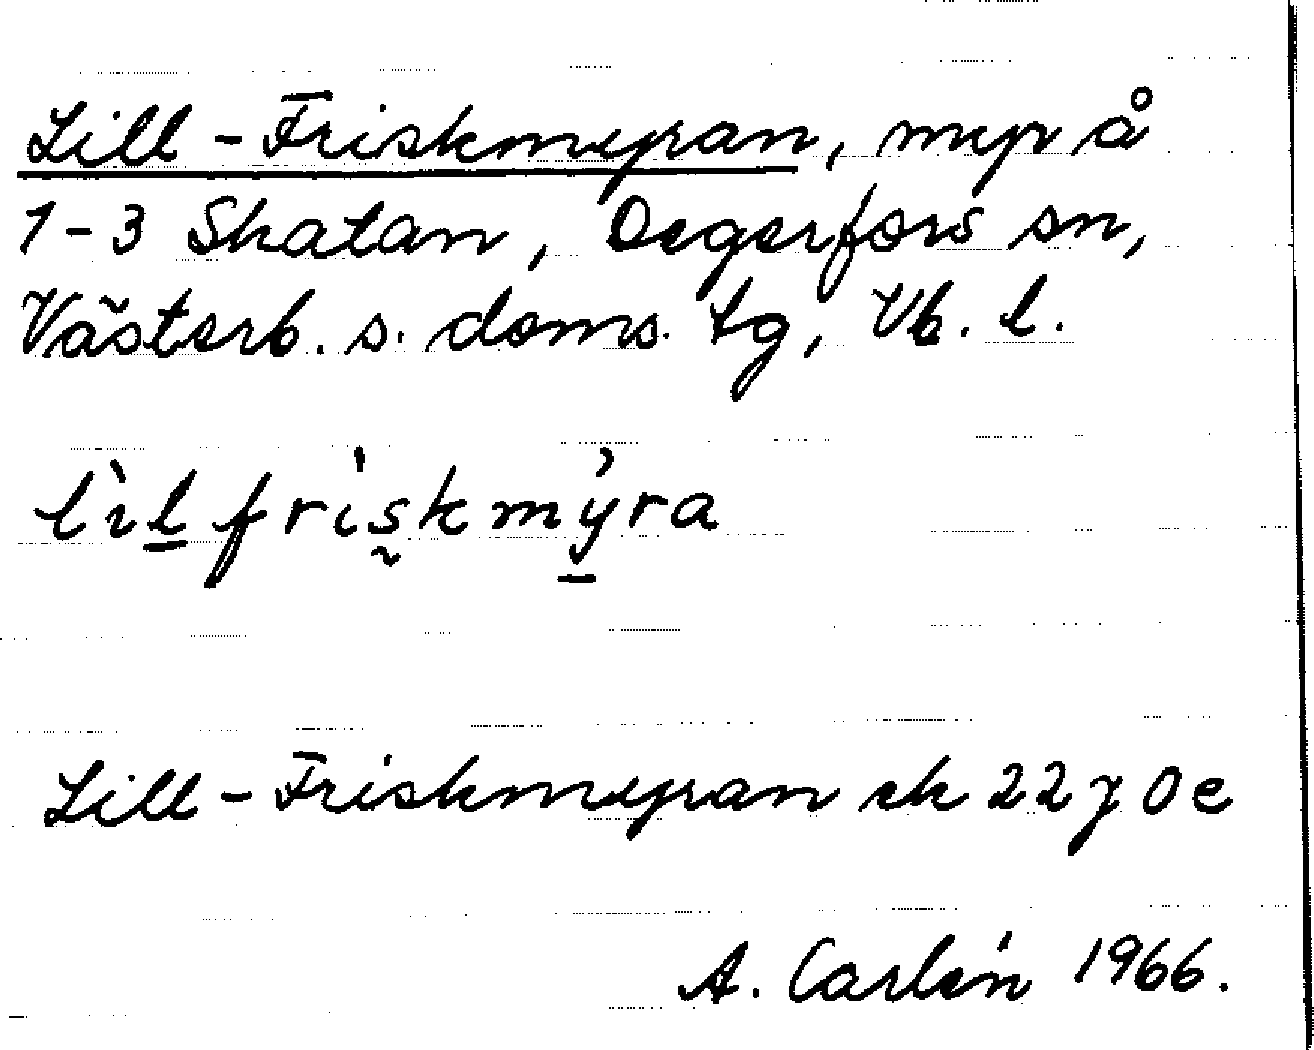 Lill-Friskmyran, myr å
1-3 Skatan, Degerfors sn,
Västerb. s. doms. tg, Vb. l.
lìl friskmýra
Lill-Friskmyran ek 22 j 0 e
A. Carlén 1966.